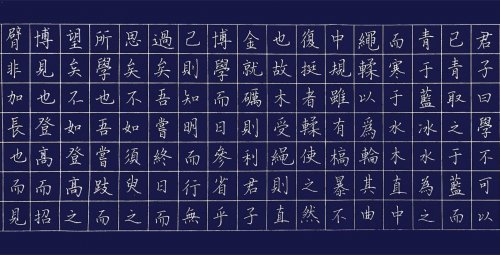 君子曰學不可以
已青取之于藍而
青于藍冰水為之
而寒于水木直中
繩輮以爲輪其曲
中規雖有槁暴不
復挺者輮使之然
也故木受繩則直
金就礪則利君子
博學而日參省乎
己則知明而行無
過矣吾嘗終日而
思矣不如須臾之
所學也吾嘗跂而
望矣不如登高之
博見也登高而招
臂非加長也而見